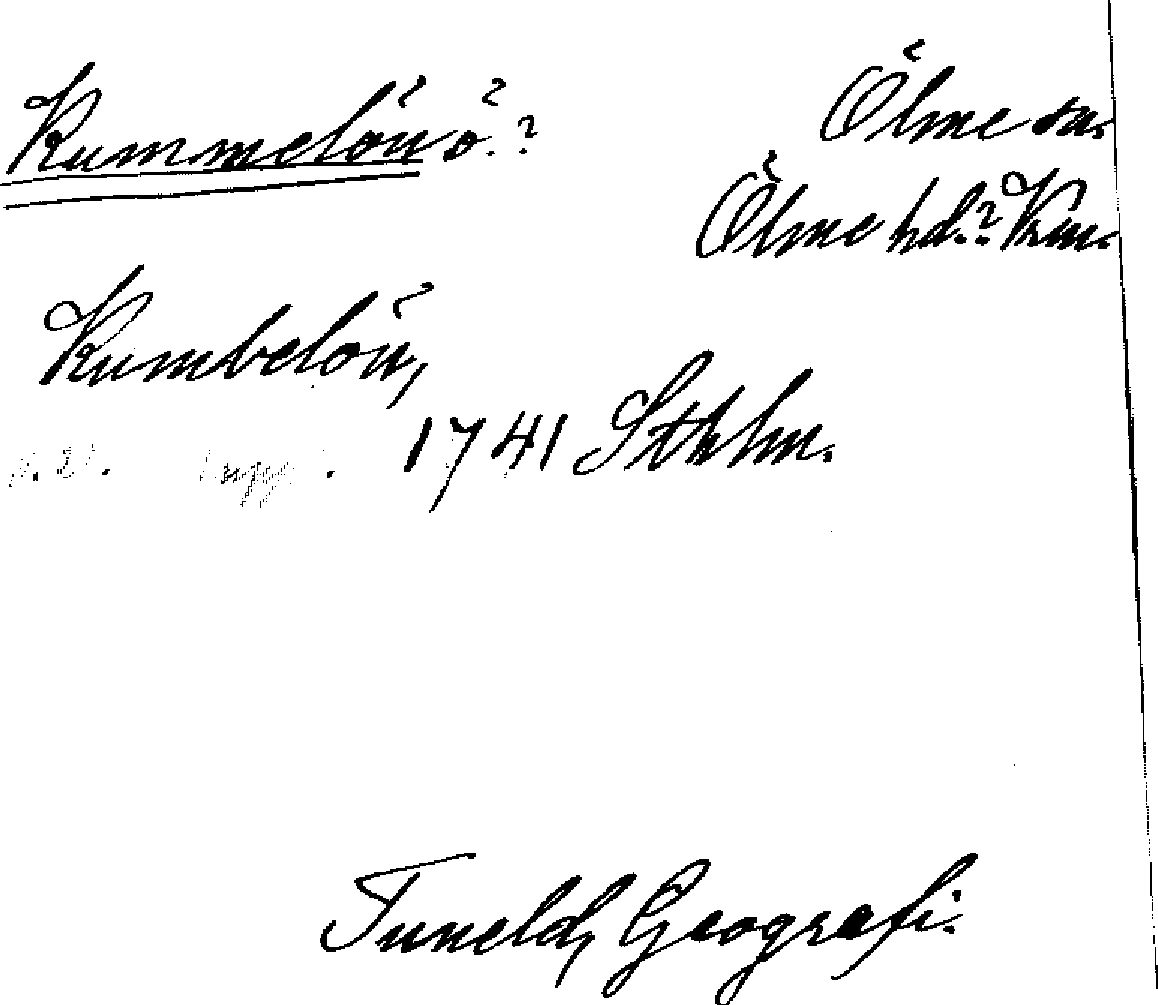 Kummelön ö.? Ölme sn.
Ölme hd.? Krm.
Kumbelön,
1741 Sthlm.
Tuneld, Geografi.